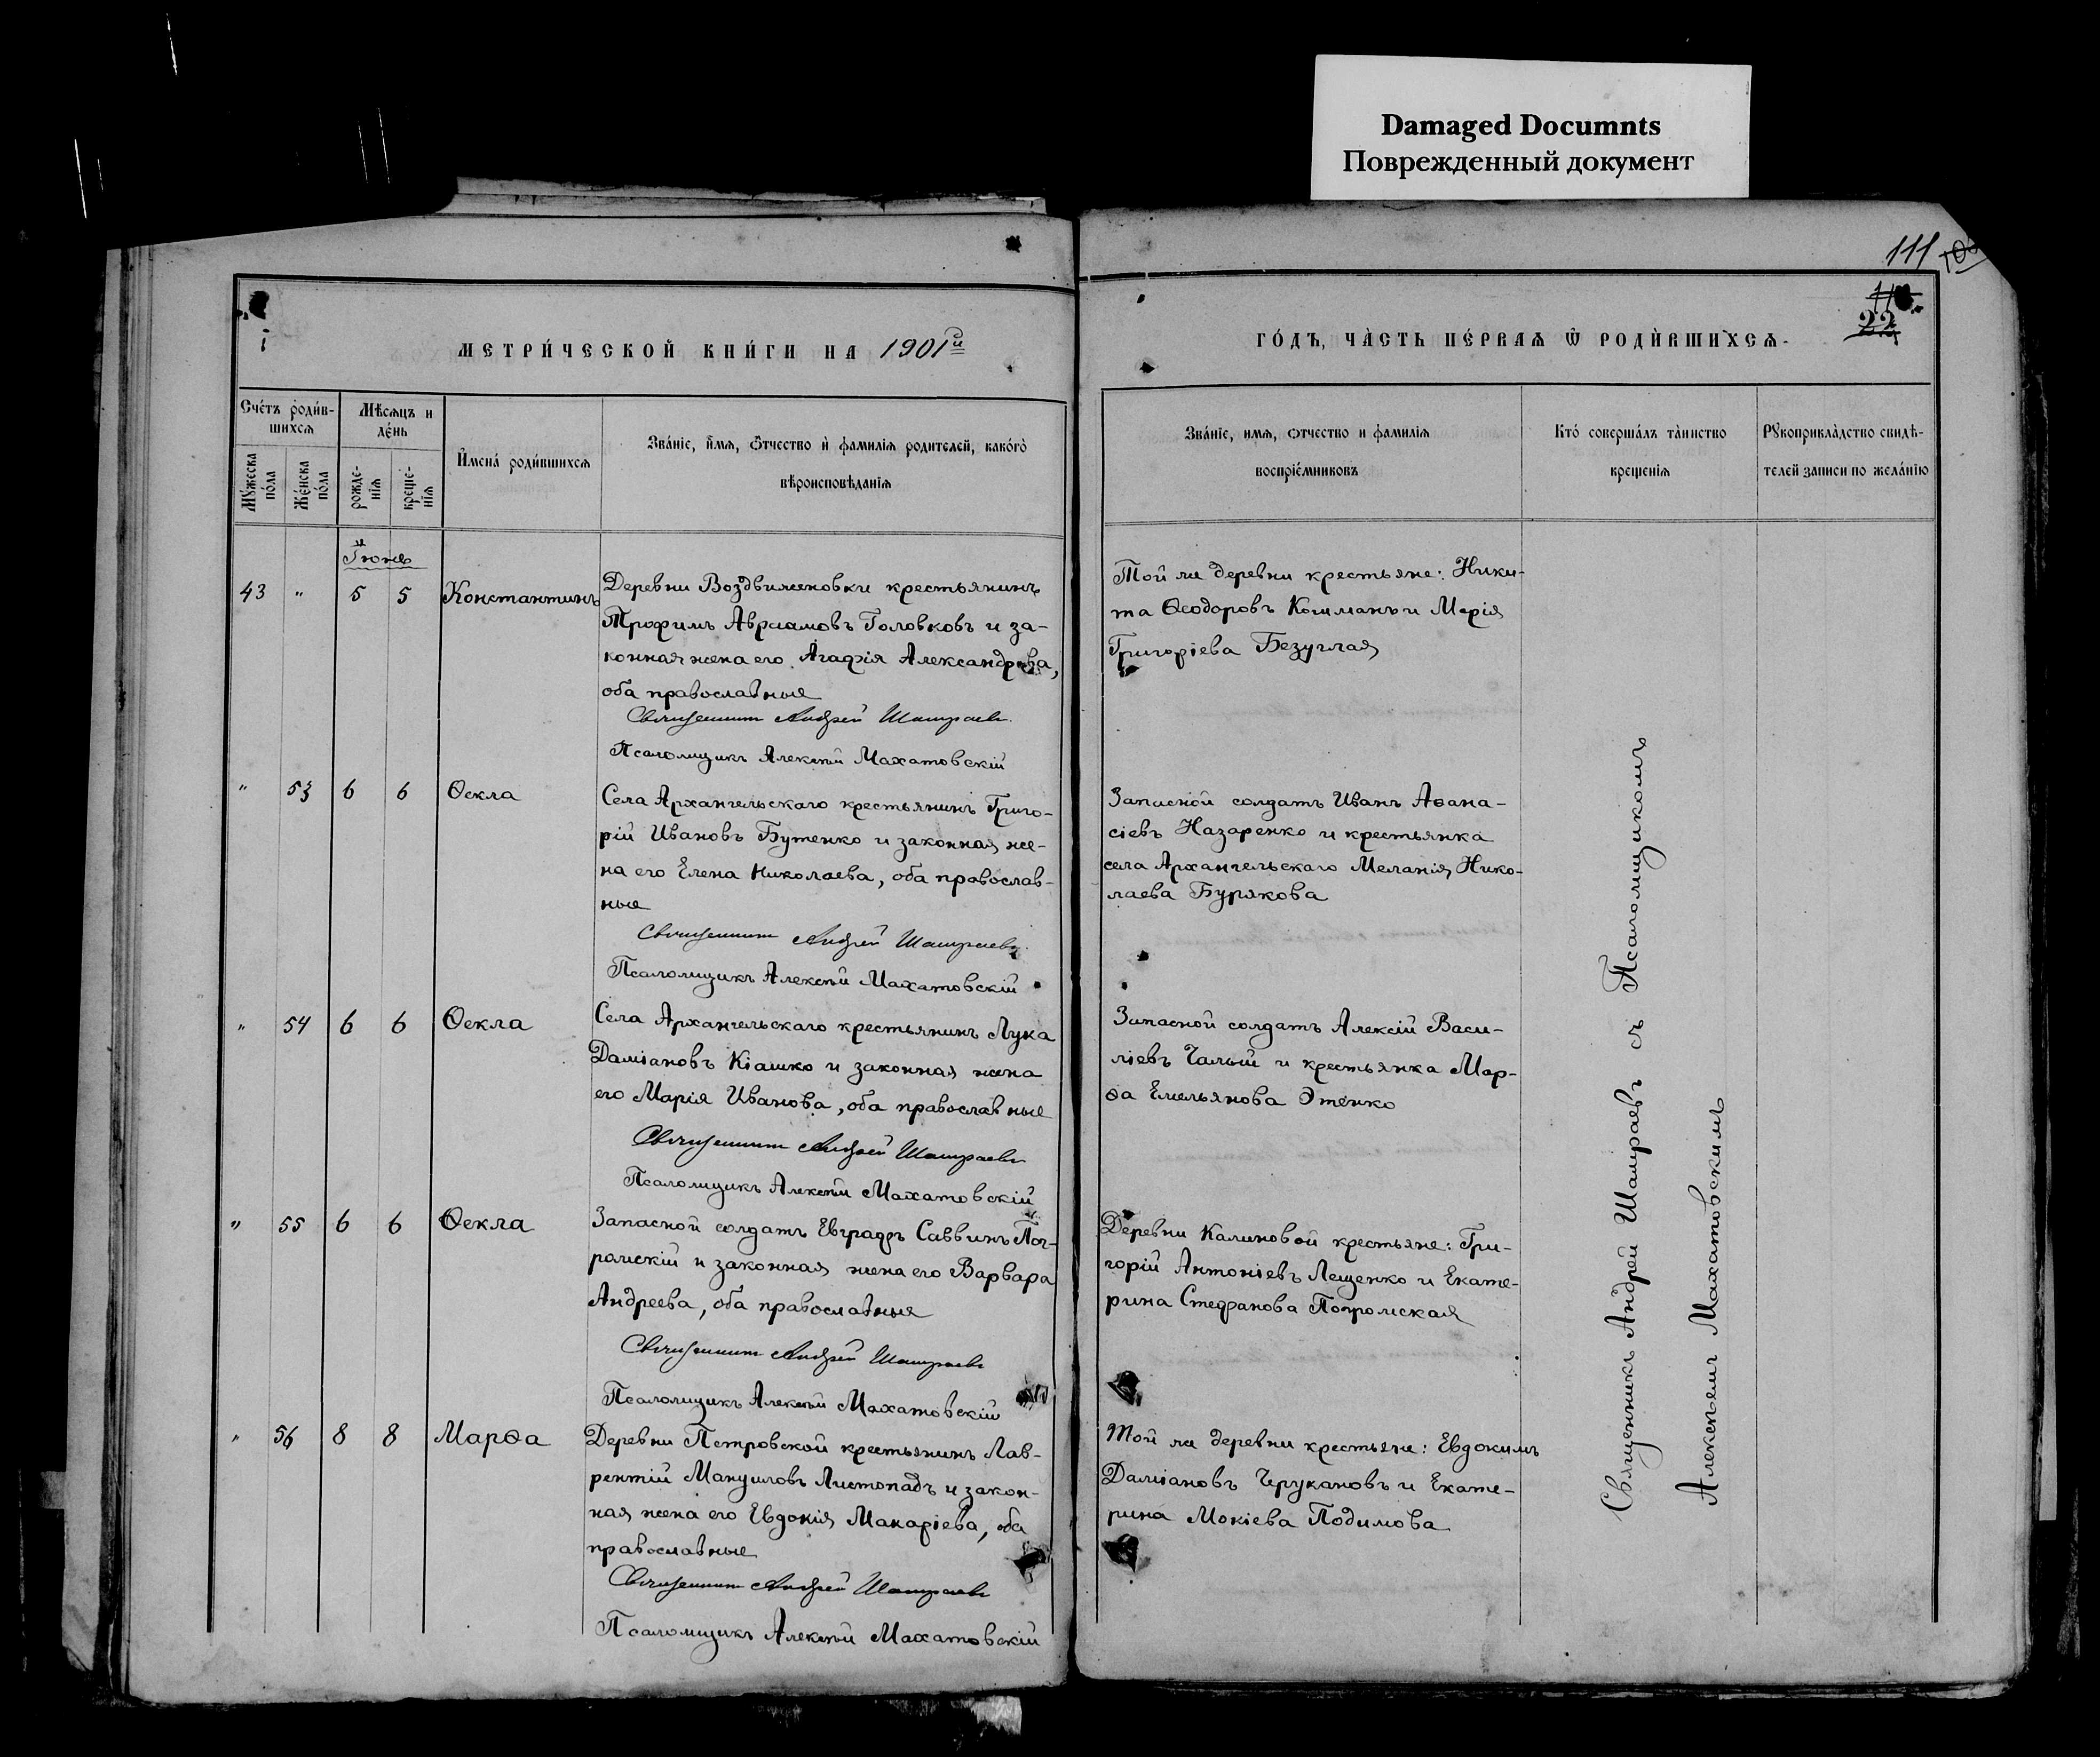 Damaged Documnts
Поврежденный документ
111
22
МЕТРИ́ЧЕСКОЙ КНИ́ГИ НА 1901й
ГО́ДЪ, ЧА́СТЬ ПЕ́РВАѦ Ѿ РОДИ́ВШИХСѦ.
Сче́тъ роди́в-
шихсѧ
Мꙋ́жеска
по́ла
Же́нска
по́ла
Мѣ́сѧцъ и
де́нь
рожде-
нїѧ
креще-
нїѧ
И҆мена̀ роди́вшихсѧ
Зва́нїе, и҆́мѧ, ѻ҆́тчество и҆ фамилїѧ родителей, како́гѡ
вѣроисповѣданїѧ
Зва́нїе, имѧ, ѻтчество и фамилїѧ
воспрїе́мниковъ
Кто́ соверша́лъ та́инство
крещенїѧ
Рꙋкоприкла́дство свидѣ-
телей записи по жела́нїю
Іюнь
43 " 5 5 Константинъ
Деревни Воздвиженовки крестьянинъ
Трофимъ Авраамовъ Головковъ и за-
конная жена его Агафія Александрова,
оба православные
Священникъ Андрей Шашраевъ
Псаломщикъ Алексѣй Махатовскій
Той же деревни крестьяне: Ники-
та Ѳеодоровъ Кошманъ и Марія
Григоріева Безуглая
" 53 6 6 Ѳекла
Села Архангельскаго крестьянинъ Григо-
рій Ивановъ Бутенко и законная же-
на его Елена Николаева, оба православ-
ные
Священникъ Андрей Шашраевъ
Псаломщикъ Алексѣй Махатовскій
Запасной солдатъ Иванъ Аѳана-
сіевъ Назаренко и крестьянка
села Архангельскаго Меланія Нико-
лаева Бурякова
" 54 6 6 Ѳекла
Села Архангельскаго крестьянинъ Лука
Даміановъ Кіашко и законная жена
его Марія Иванова, оба православные
Священникъ Андрей Шашраевъ
Псаломщикъ Алексѣй Махатовскій
Запасной солдатъ Алексій Васи-
ліевъ Чалый и крестьянка Мар-
ѳа Емельянова Этенко
" 55 6 6 Ѳекла
Запасной солдатъ Евграфъ Саввинъ Пог-
ромскій и законная жена его Варвара
Андреева, оба православныя
Священникъ Андрей Шашраевъ
Псаломщикъ Алексѣй Махатовскій
Деревни Калиновой крестьяне: Гри-
горій Антоніевъ Лещенко и Екате-
рина Стефанова Погромская
" 56 8 8 Марѳа
Деревни Петровской крестьянинъ Лав-
рентій Мануиловъ Листопадъ и закон-
ная жена его Евдокія Макаріева, оба
православные
Священникъ Андрей Шашраевъ
Псаломщикъ Алексѣй Махатовскій
Той же деревни крестьяне: Евдокимъ
Даміановъ Черукановъ и Екате-
рина Мокіева Подимова
Священникъ Андрей Шашраевъ съ Псаломщикомъ
Алексѣемъ Махатовскимъ